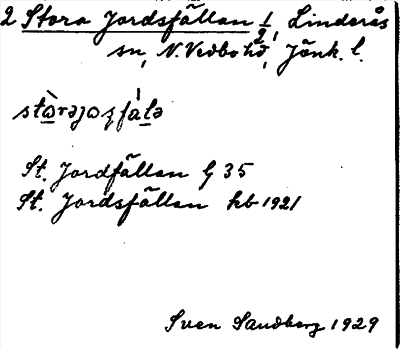 2 Stora Jordsfällan 1/2, Linderås
sn, N. Vedbo hd, Jönk. l.
St. Jordfällan G 35
St. Jordsfällan hb 1921
Sven Sandberg 1929